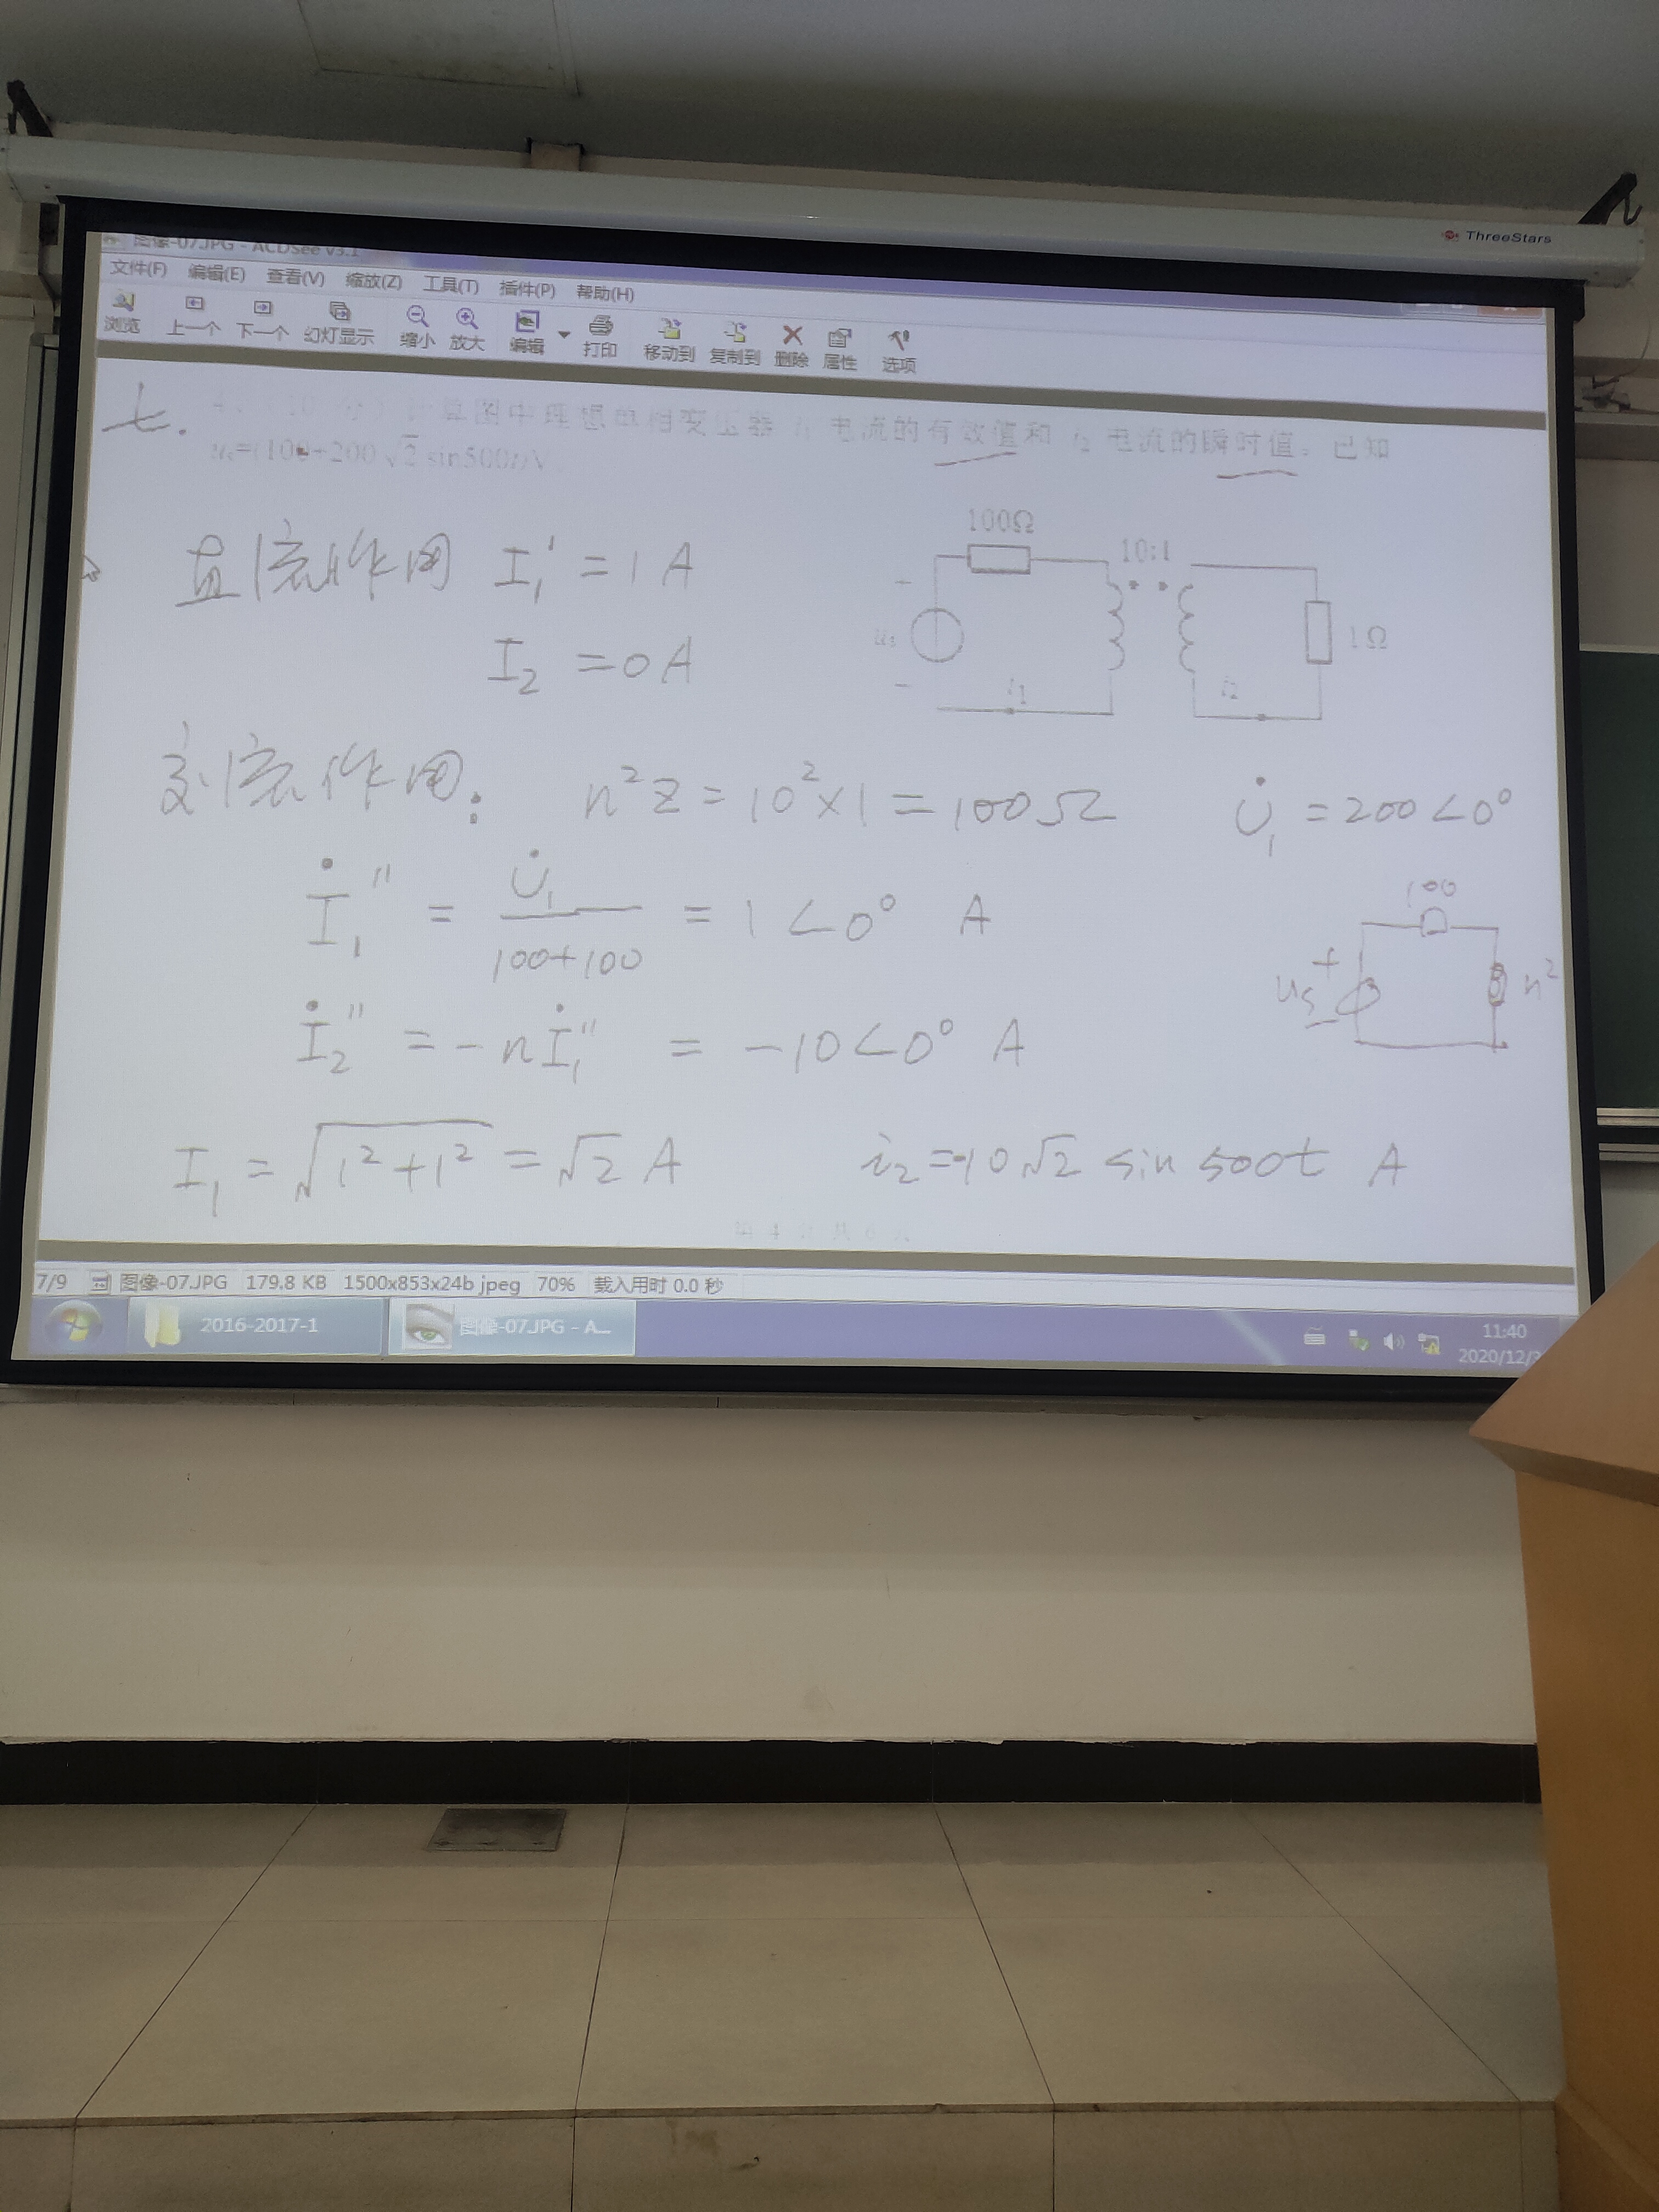 ThreeStars
图像-07.JPG - ACDSee v3.1
文件(F) 编辑(E) 查看(V) 缩放(Z) 工具(T) 插件(P) 帮助(H)
浏览 上一个 下一个 幻灯显示 缩小 放大 编辑 打印 移动到 复制到 删除 属性 选项
七. 算图中理想 变压器 i₁ 电流的有效值和 i₂ 电流的瞬时值。已知
uₛ=(100+200√2 sin500t)V
直流作用 I₁' = 1 A
I₂ = 0 A
100Ω
10:1
uₛ
1Ω
i₁
i₂
交流作用: n²Z = 10²×1 = 100Ω U̇₁ = 200∠0°
İ₁'' = U̇₁/(100+100) = 1∠0° A
100
uₛ + n²
İ₂'' = -nİ₁'' = -10∠0° A
I₁ = √(1²+1²) = √2 A i₂=-10√2 sin 500t A
7/9 图像-07.JPG 179.8 KB 1500x853x24b jpeg 70% 载入用时 0.0 秒
2016-2017-1 图像-07.JPG - A...
11:40
2020/12/